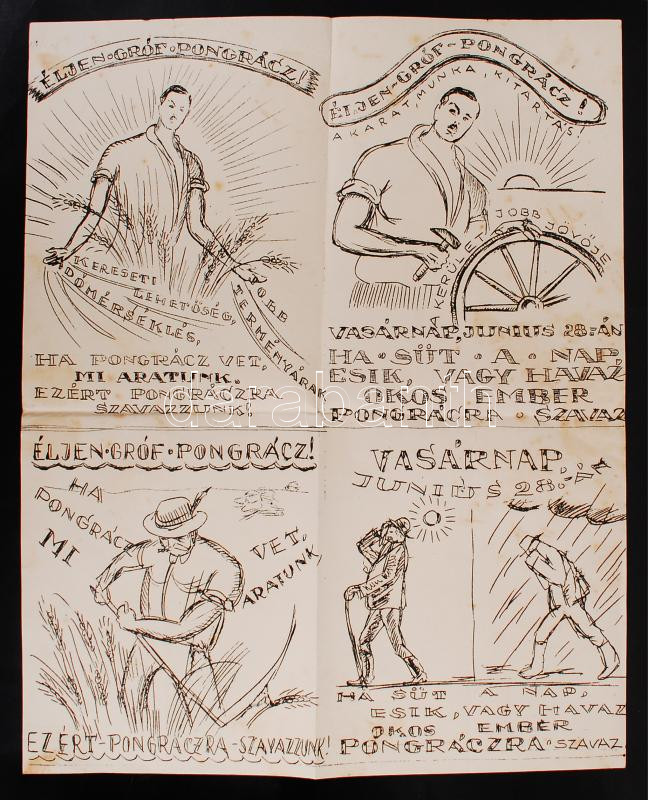 ÉLJEN·GRÓF·PONGRÁCZ!
KERESETI
LEHETŐSÉG,
ADÓMÉRSÉKLÉS,
JOBB
TERMÉNYÁRAK
HA PONGRÁCZ VET,
MI ARATUNK.
EZÉRT PONGRÁCZRA
SZAVAZZUNK!
ÉLJEN-GRÓF-PONGRÁCZ!
AKARAT, MUNKA, KITARTÁS!
JOBB JÖVŐJE
VASÁRNAP, JUNIUS 28.-ÁN
HA·SÜT·A·NAP,
ESIK, VAGY HAVAZ
OKOS EMBER
PONGRÁCRA·SZAVAZ
ÉLJEN·GRÓF·PONGRÁCZ!
HA
PONGRÁCZ
VET,
MI
ARATUNK,
EZÉRT-PONGRÁCZRA-SZAVAZZUNK!
VASÁRNAP,
JUNIUS 28.-ÁN
HA SÜT A NAP,
ESIK, VAGY HAVAZ
OKOS EMBER
PONGRÁCZRA·SZAVAZ.
darabanth